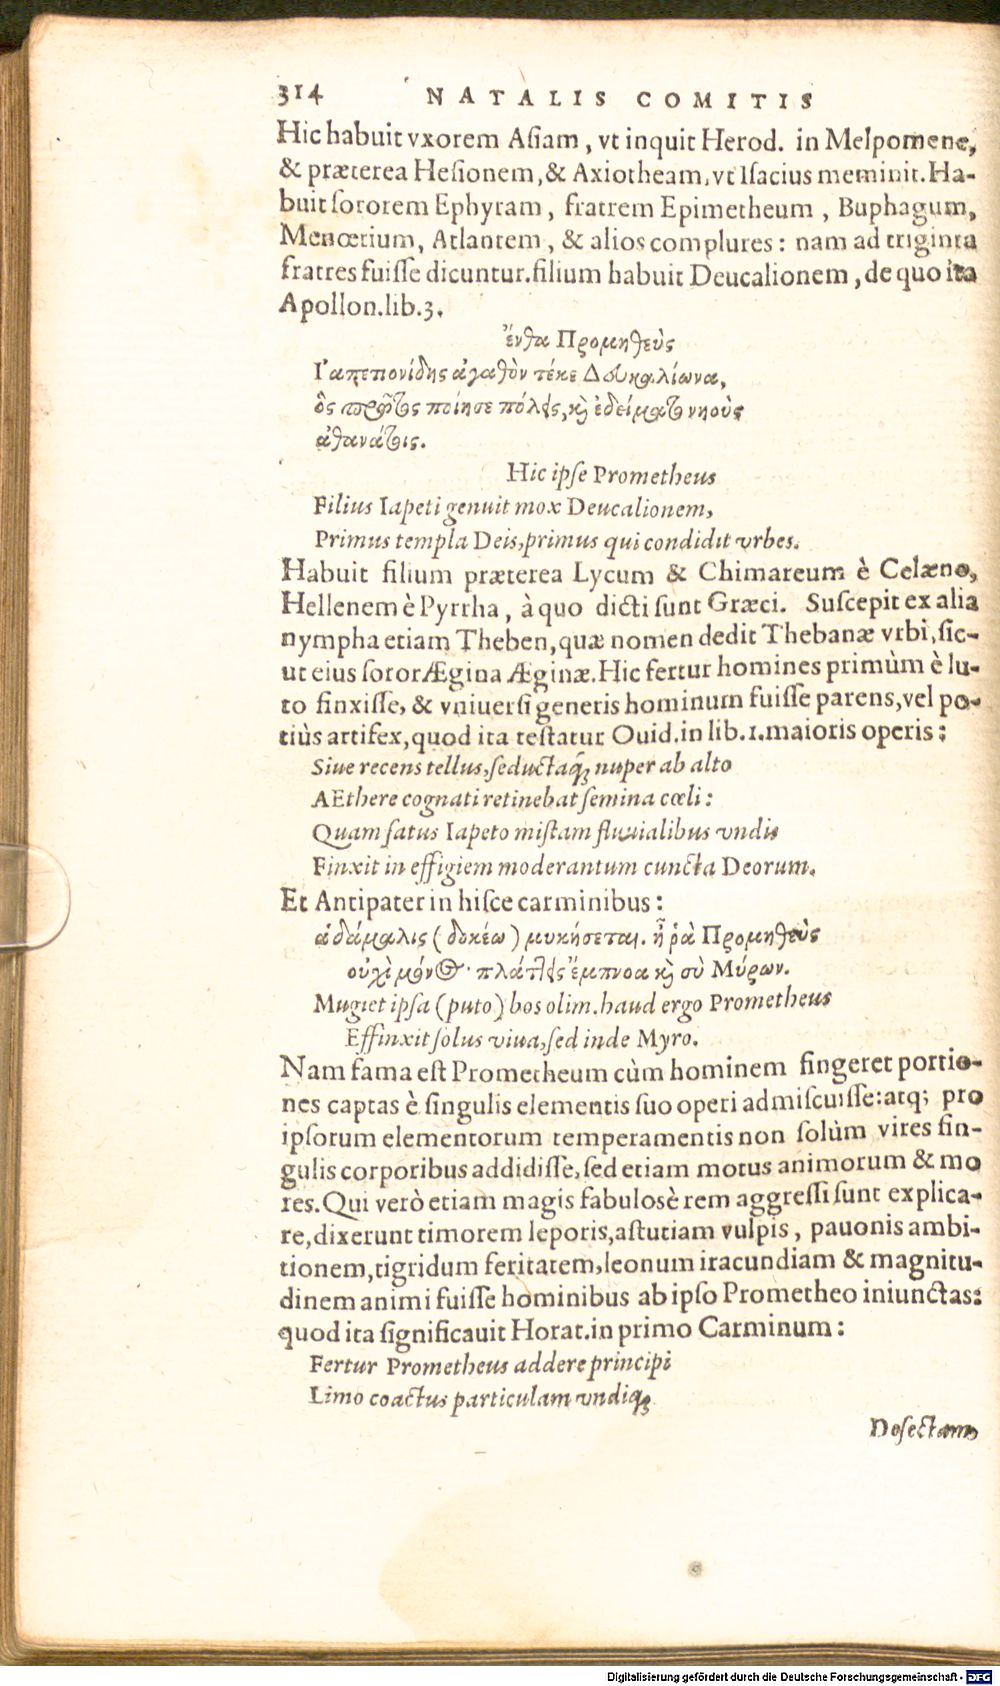 314 NATALIS COMITIS
Hic habuit vxorem Asiam, vt inquit Herod. in Melpomene,
& præterea Hesionem, & Axiotheam, vt Isacius meminit. Ha-
buit sororem Ephyram, fratrem Epimetheum, Buphagum,
Menœtium, Atlantem, & alios complures: nam ad triginta
fratres fuisse dicuntur. filium habuit Deucalionem, de quo ita
Apollon. lib. 3.
ἔνθα Προμηθεὺς
Γαπετιονίδης ἀγαθὸν τέκε Δευκαλίωνα,
ὃς πρῶτος ποίησε πόλεις, καὶ ἐδείματο νηοὺς
ἀθανάτοις.
Hic ipse Prometheus
Filius Iapeti genuit mox Deucalionem,
Primus templa Deis, primus qui condidit vrbes.
Habuit filium præterea Lycum & Chimareum è Celæno,
Hellenem è Pyrrha, à quo dicti sunt Græci. Suscepit ex alia
nympha etiam Theben, quæ nomen dedit Thebanæ vrbi, sic-
ut eius soror Ægina Æginæ. Hic fertur homines primùm è lu-
to finxisse, & vniuersi generis hominum fuisse parens, vel po-
tiùs artifex, quod ita testatur Ouid. in lib. 1. maioris operis:
Siue recens tellus, seductaq; nuper ab alto
AEthere cognati retinebat semina cœli:
Quam satus Iapeto mistam fluuialibus vndis
Finxit in effigiem moderantum cuncta Deorum.
Et Antipater in hisce carminibus:
ἁ δάμαλις (δοκέω) μυκήσεται. ἦ ῥὰ Προμηθεὺς
οὐχὶ μόνος· πλάττεις ἔμπνοα καὶ σὺ Μύρων.
Mugiet ipsa (puto) bos olim. haud ergo Prometheus
Effinxit solus viua, sed inde Myro.
Nam fama est Prometheum cùm hominem fingeret portio-
nes captas è singulis elementis suo operi admiscuisse: atq; pro
ipsorum elementorum temperamentis non solùm vires sin-
gulis corporibus addidisse, sed etiam motus animorum & mo
res. Qui verò etiam magis fabulosè rem aggressi sunt explica-
re, dixerunt timorem leporis, astutiam vulpis, pauonis ambi-
tionem, tigridum feritatem, leonum iracundiam & magnitu-
dinem animi fuisse hominibus ab ipso Prometheo iniunctas:
quod ita significauit Horat. in primo Carminum:
Fertur Prometheus addere principi
Limo coactus particulam vndiq;
Desectam
Digitalisierung gefördert durch die Deutsche Forschungsgemeinschaft - DFG